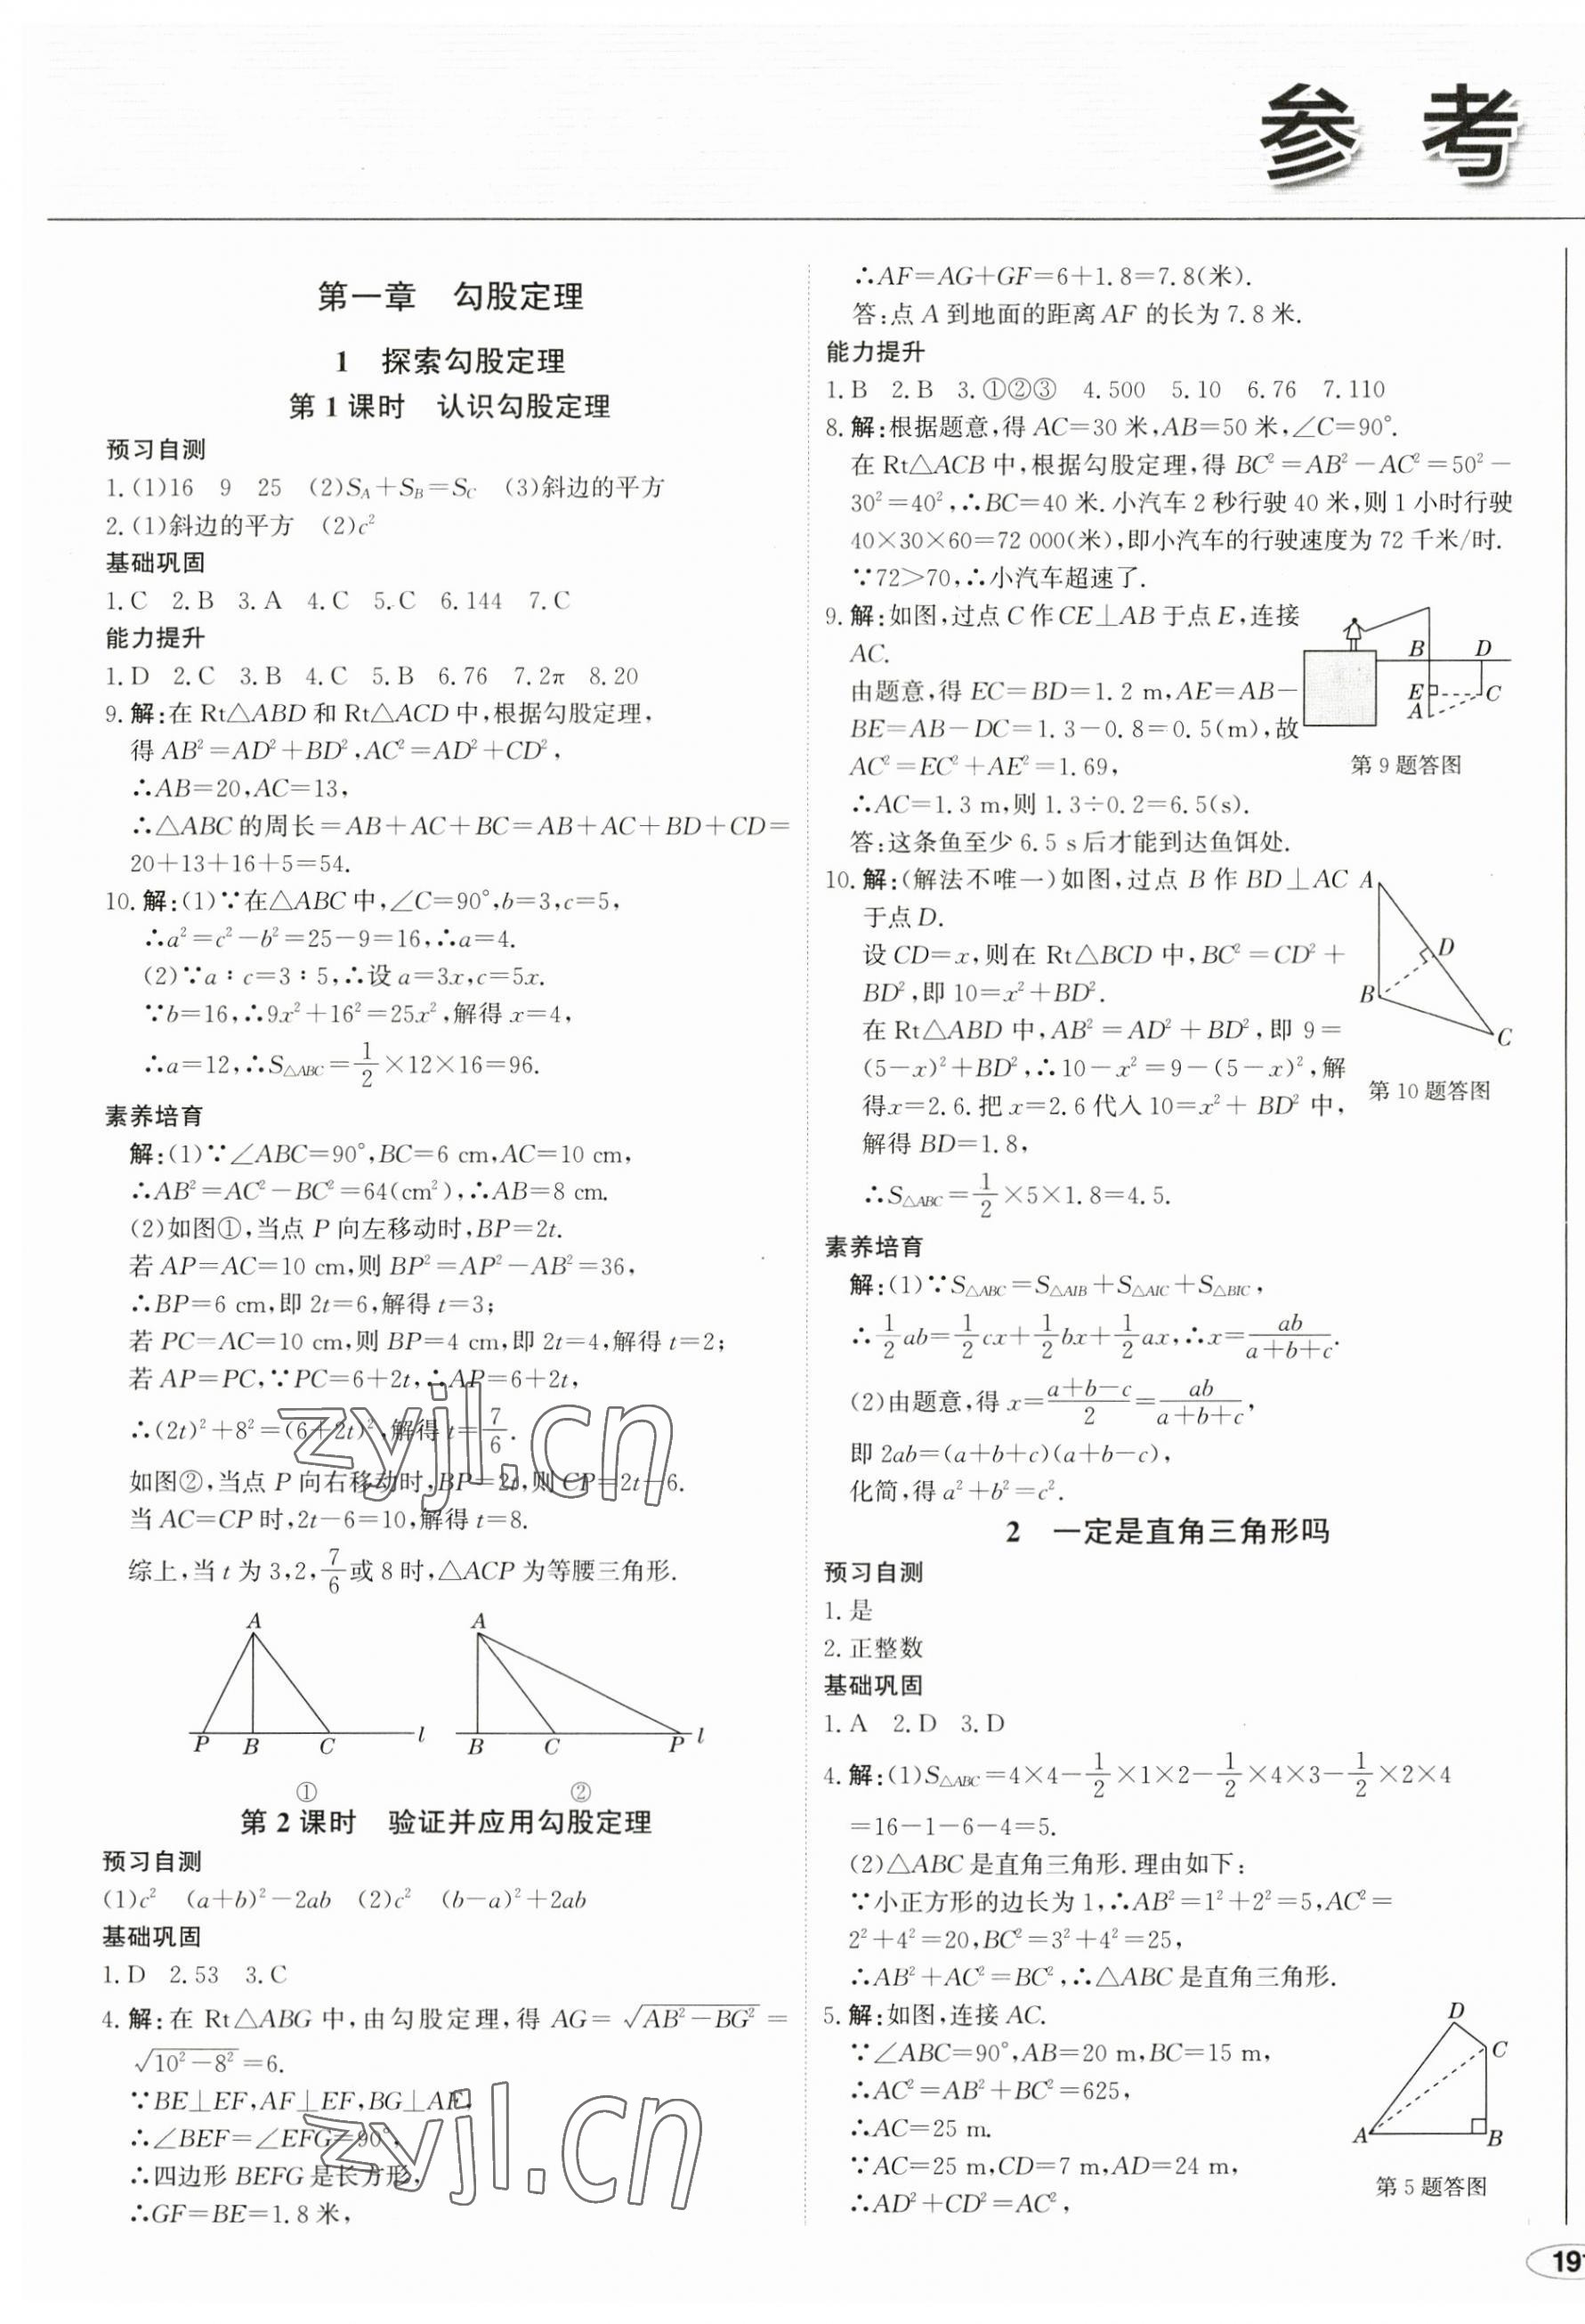 参 考
第一章 勾股定理
1 探索勾股定理
第1课时 认识勾股定理
预习自测
1.(1)16 9 25 (2)S_A+S_B=S_C (3)斜边的平方
2.(1)斜边的平方 (2)c²
基础巩固
1.C 2.B 3.A 4.C 5.C 6.144 7.C
能力提升
1.D 2.C 3.B 4.C 5.B 6.76 7.2π 8.20
9.解:在 Rt△ABD 和 Rt△ACD 中,根据勾股定理,
得 AB²=AD²+BD²,AC²=AD²+CD²,
∴AB=20,AC=13,
∴△ABC 的周长=AB+AC+BC=AB+AC+BD+CD=
20+13+16+5=54.
10.解:(1)∵在△ABC 中,∠C=90°,b=3,c=5,
∴a²=c²-b²=25-9=16,∴a=4.
(2)∵a∶c=3∶5,∴设 a=3x,c=5x.
∵b=16,∴9x²+16²=25x²,解得 x=4,
∴a=12,∴S△ABC=1/2×12×16=96.
素养培育
解:(1)∵∠ABC=90°,BC=6 cm,AC=10 cm,
∴AB²=AC²-BC²=64(cm²),∴AB=8 cm.
(2)如图①,当点 P 向左移动时,BP=2t.
若 AP=AC=10 cm,则 BP²=AP²-AB²=36,
∴BP=6 cm,即 2t=6,解得 t=3;
若 PC=AC=10 cm,则 BP=4 cm,即 2t=4,解得 t=2;
若 AP=PC,∵PC=6+2t,∴AP=6+2t,
∴(2t)²+8²=(6+2t)²,解得 t=7/6.
如图②,当点 P 向右移动时,BP=2t,则 CP=2t-6.
当 AC=CP 时,2t-6=10,解得 t=8.
综上,当 t 为 3,2,7/6或 8 时,△ACP 为等腰三角形.
A
P B C l
①
A
B C P l
②
第2课时 验证并应用勾股定理
预习自测
(1)c² (a+b)²-2ab (2)c² (b-a)²+2ab
基础巩固
1.D 2.53 3.C
4.解:在 Rt△ABG 中,由勾股定理,得 AG=√(AB²-BG²)=
√(10²-8²)=6.
∵BE⊥EF,AF⊥EF,BG⊥AF,
∴∠BEF=∠EFG=90°,
∴四边形 BEFG 是长方形,
∴GF=BE=1.8 米,
zyjl.cn
zyjl.cn
∴AF=AG+GF=6+1.8=7.8(米).
答:点 A 到地面的距离 AF 的长为 7.8 米.
能力提升
1.B 2.B 3.①②③ 4.500 5.10 6.76 7.110
8.解:根据题意,得 AC=30 米,AB=50 米,∠C=90°.
在 Rt△ACB 中,根据勾股定理,得 BC²=AB²-AC²=50²-
30²=40²,∴BC=40 米.小汽车 2 秒行驶 40 米,则 1 小时行驶
40×30×60=72 000(米),即小汽车的行驶速度为 72 千米/时.
∵72>70,∴小汽车超速了.
9.解:如图,过点 C 作 CE⊥AB 于点 E,连接
AC.
由题意,得 EC=BD=1.2 m,AE=AB-
BE=AB-DC=1.3-0.8=0.5(m),故
AC²=EC²+AE²=1.69,
∴AC=1.3 m,则 1.3÷0.2=6.5(s).
答:这条鱼至少 6.5 s后才能到达鱼饵处.
B D
E C
A
第9题答图
10.解:(解法不唯一)如图,过点 B 作 BD⊥AC
于点 D.
设 CD=x,则在 Rt△BCD 中,BC²=CD²+
BD²,即 10=x²+BD².
在 Rt△ABD 中,AB²=AD²+BD²,即 9=
(5-x)²+BD²,∴10-x²=9-(5-x)²,解
得x=2.6.把 x=2.6代入 10=x²+BD² 中,
解得 BD=1.8,
∴S△ABC=1/2×5×1.8=4.5.
A
D
B
C
第10题答图
素养培育
解:(1)∵S△ABC=S△AIB+S△AIC+S△BIC,
∴1/2ab=1/2cx+1/2bx+1/2ax,∴x=ab/(a+b+c).
(2)由题意,得 x=(a+b-c)/2=ab/(a+b+c),
即 2ab=(a+b+c)(a+b-c),
化简,得 a²+b²=c².
2 一定是直角三角形吗
预习自测
1.是
2.正整数
基础巩固
1.A 2.D 3.D
4.解:(1)S△ABC=4×4-1/2×1×2-1/2×4×3-1/2×2×4
=16-1-6-4=5.
(2)△ABC 是直角三角形.理由如下:
∵小正方形的边长为 1,∴AB²=1²+2²=5,AC²=
2²+4²=20,BC²=3²+4²=25,
∴AB²+AC²=BC²,∴△ABC 是直角三角形.
5.解:如图,连接 AC.
∵∠ABC=90°,AB=20 m,BC=15 m,
∴AC²=AB²+BC²=625,
∴AC=25 m.
∵AC=25 m,CD=7 m,AD=24 m,
∴AD²+CD²=AC²,
D
C
A
B
第5题答图